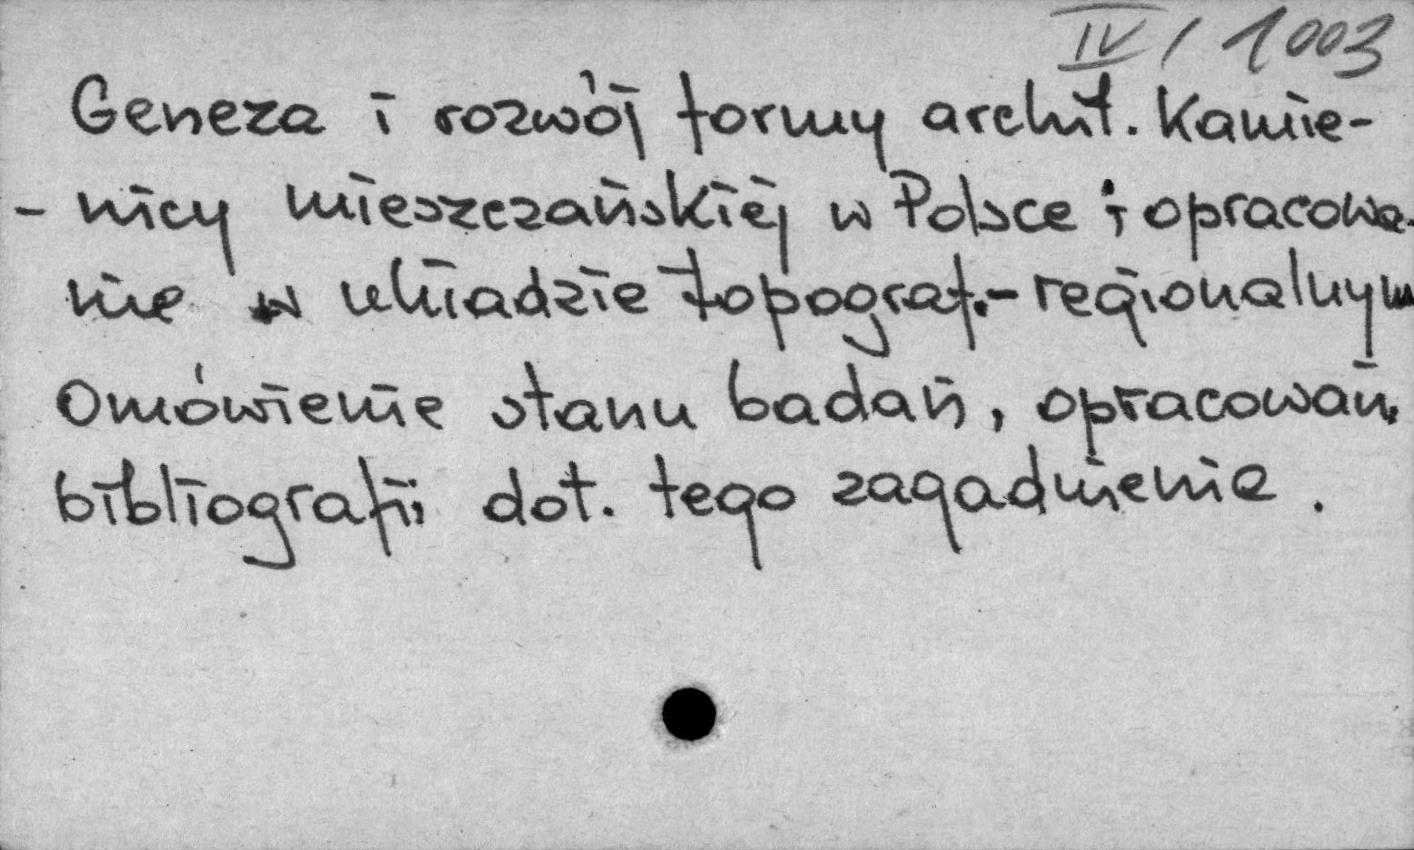 IV / 1003
Geneza i rozwój formy archit. Kamie-
- nicy mieszczańskiej w Polsce i opracowa-
nie w układzie topograf.- regionalnym
Omówienie stanu badań, opracowań,
bibliografii dot. tego zagadnienia .